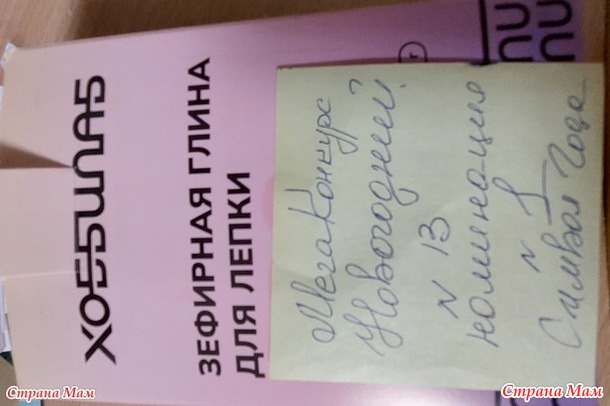 ХОББИЛАБ
ЗЕФИРНАЯ ГЛИНА
ДЛЯ ЛЕПКИ
МегаКонкурс
Новогодний
N 13
номинация
N 1
Символ Года
Страна Мам
Страна Мам